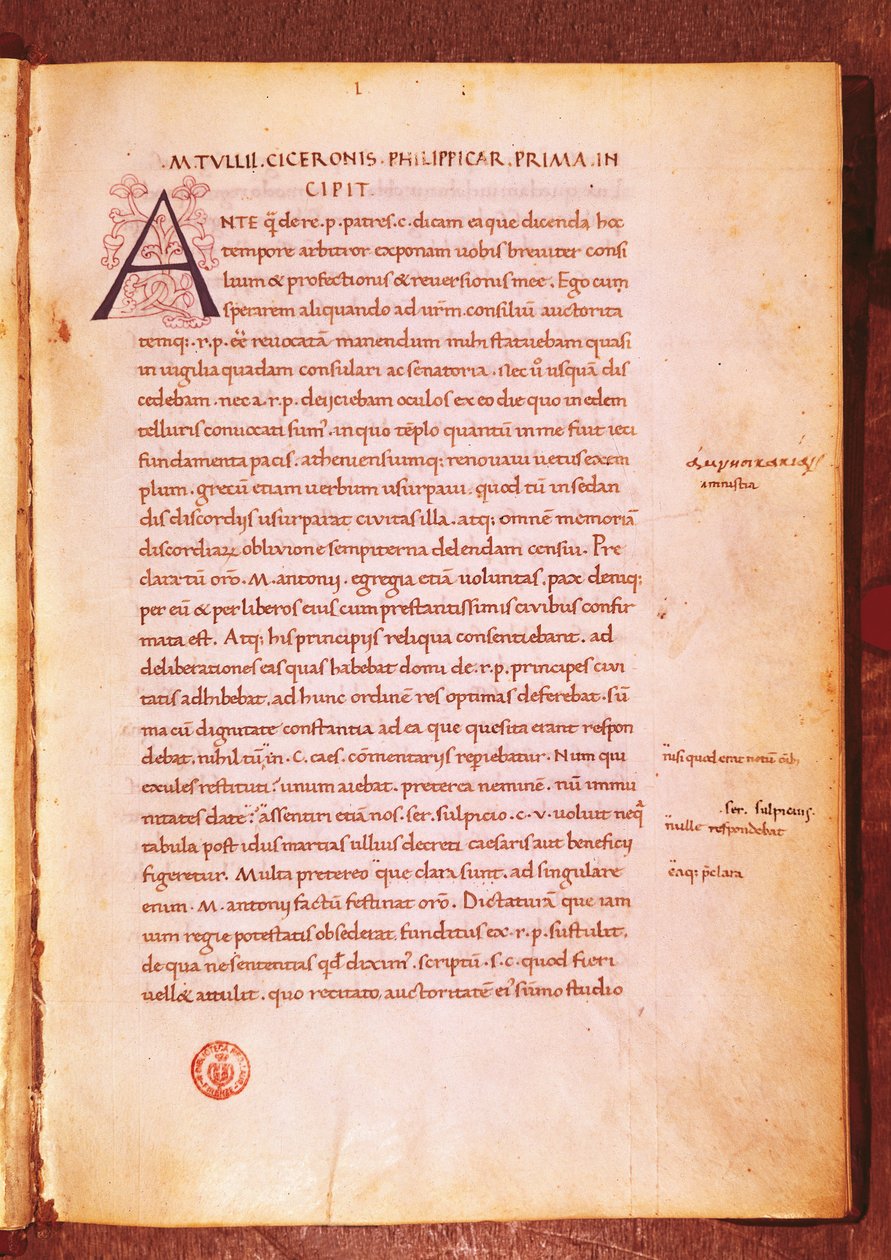 1
.M.TVLLII.CICERONIS.PHILIPPICAR.PRIMA.IN
CIPIT.
ANTE q̄ de re.p.patres.c.dicam ea que dicenda hoc
tempore arbitror exponam uobis breuiter consi
lium & profectionis & reuersionis mee. Ego cum
sperarem aliquando ad ur̄m.consiliū auctorita
temq;.r.p. eē reuocatā manendum mihi statuebam quasi
in uigilia quadam consulari ac senatoria. Nec ů usquā dis
cedebam.nec a.r.p. deijciebam oculos ex eo die quo in edem
telluris conuocati sum᾿.in quo tēplo quantū in me fuit ieci
fundamenta pacis.atheniensiumq; renouaui uetus exem
plum.grecū etiam uerbum usurpaui.quod tū in sedan
dis discordijs usurparat ciuitas illa.atq; omnē memoriā
discordiaꝝ obliuione sempiterna delendam censui. Pre
clara tū orō.M.antonij.egregia etiā uoluntas.pax deniq;
per eū & per liberos eius cum prestantissimis ciuibus confir
mata est. Atq; his principijs reliqua consentiebant.ad
deliberationes eas quas habebat domi de.r.p.principes ciui
tatis adhibebat.ad hunc ordinē res optimas deferebat.sū
ma cū dignitate constantia ad ea que quesita erant respon
debat.nihil tū in.C.caes.cōmentarijs reperiebatur. Num qui
exules restituti? unum aiebat.preterea neminē.nū immu
nitates date? assentiri etiā nos.ser.sulpicio.c.v.uoluit neq̄
tabula post idus martias ullius decreti caesaris aut beneficii
figeretur. Multa pretereo que clara sunt.ad singulare
enim.M.antonij factū festinat orō. Dictaturā que iam
uim regie potestatis obsederat funditus ex.r.p.sustulit.
de qua ne sententias qd̄ diximus.scriptū.s.c.quod fieri
uell& attulit.quo recitato,auctoritatē ei᾿ sūmo studio
amnistia
nisi quod erat notū oīb;
.ser. sulpicius.
nulle respondebat
eaq; p̄clara